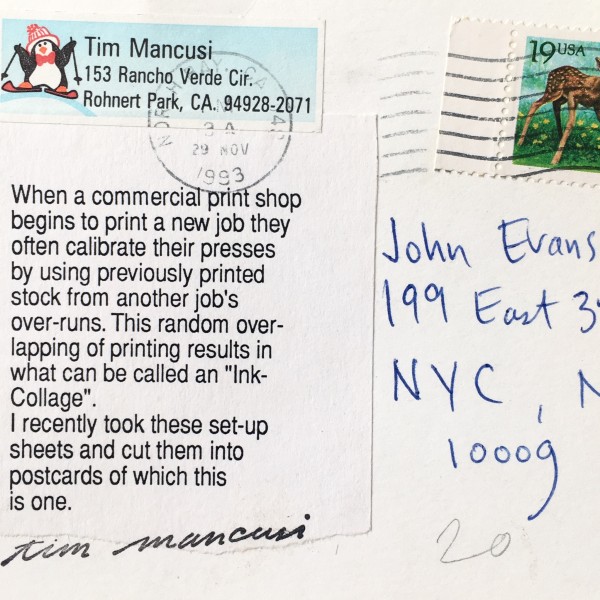 Tim Mancusi
153 Rancho Verde Cir.
Rohnert Park, CA. 94928-2071
29 NOV
1993
19 USA
When a commercial print shop
begins to print a new job they
often calibrate their presses
by using previously printed
stock from another job's
over-runs. This random over-
lapping of printing results in
what can be called an "Ink-
Collage".
I recently took these set-up
sheets and cut them into
postcards of which this
is one.
tim mancusi
John Evans
199 East 3
NYC, N
10009
20